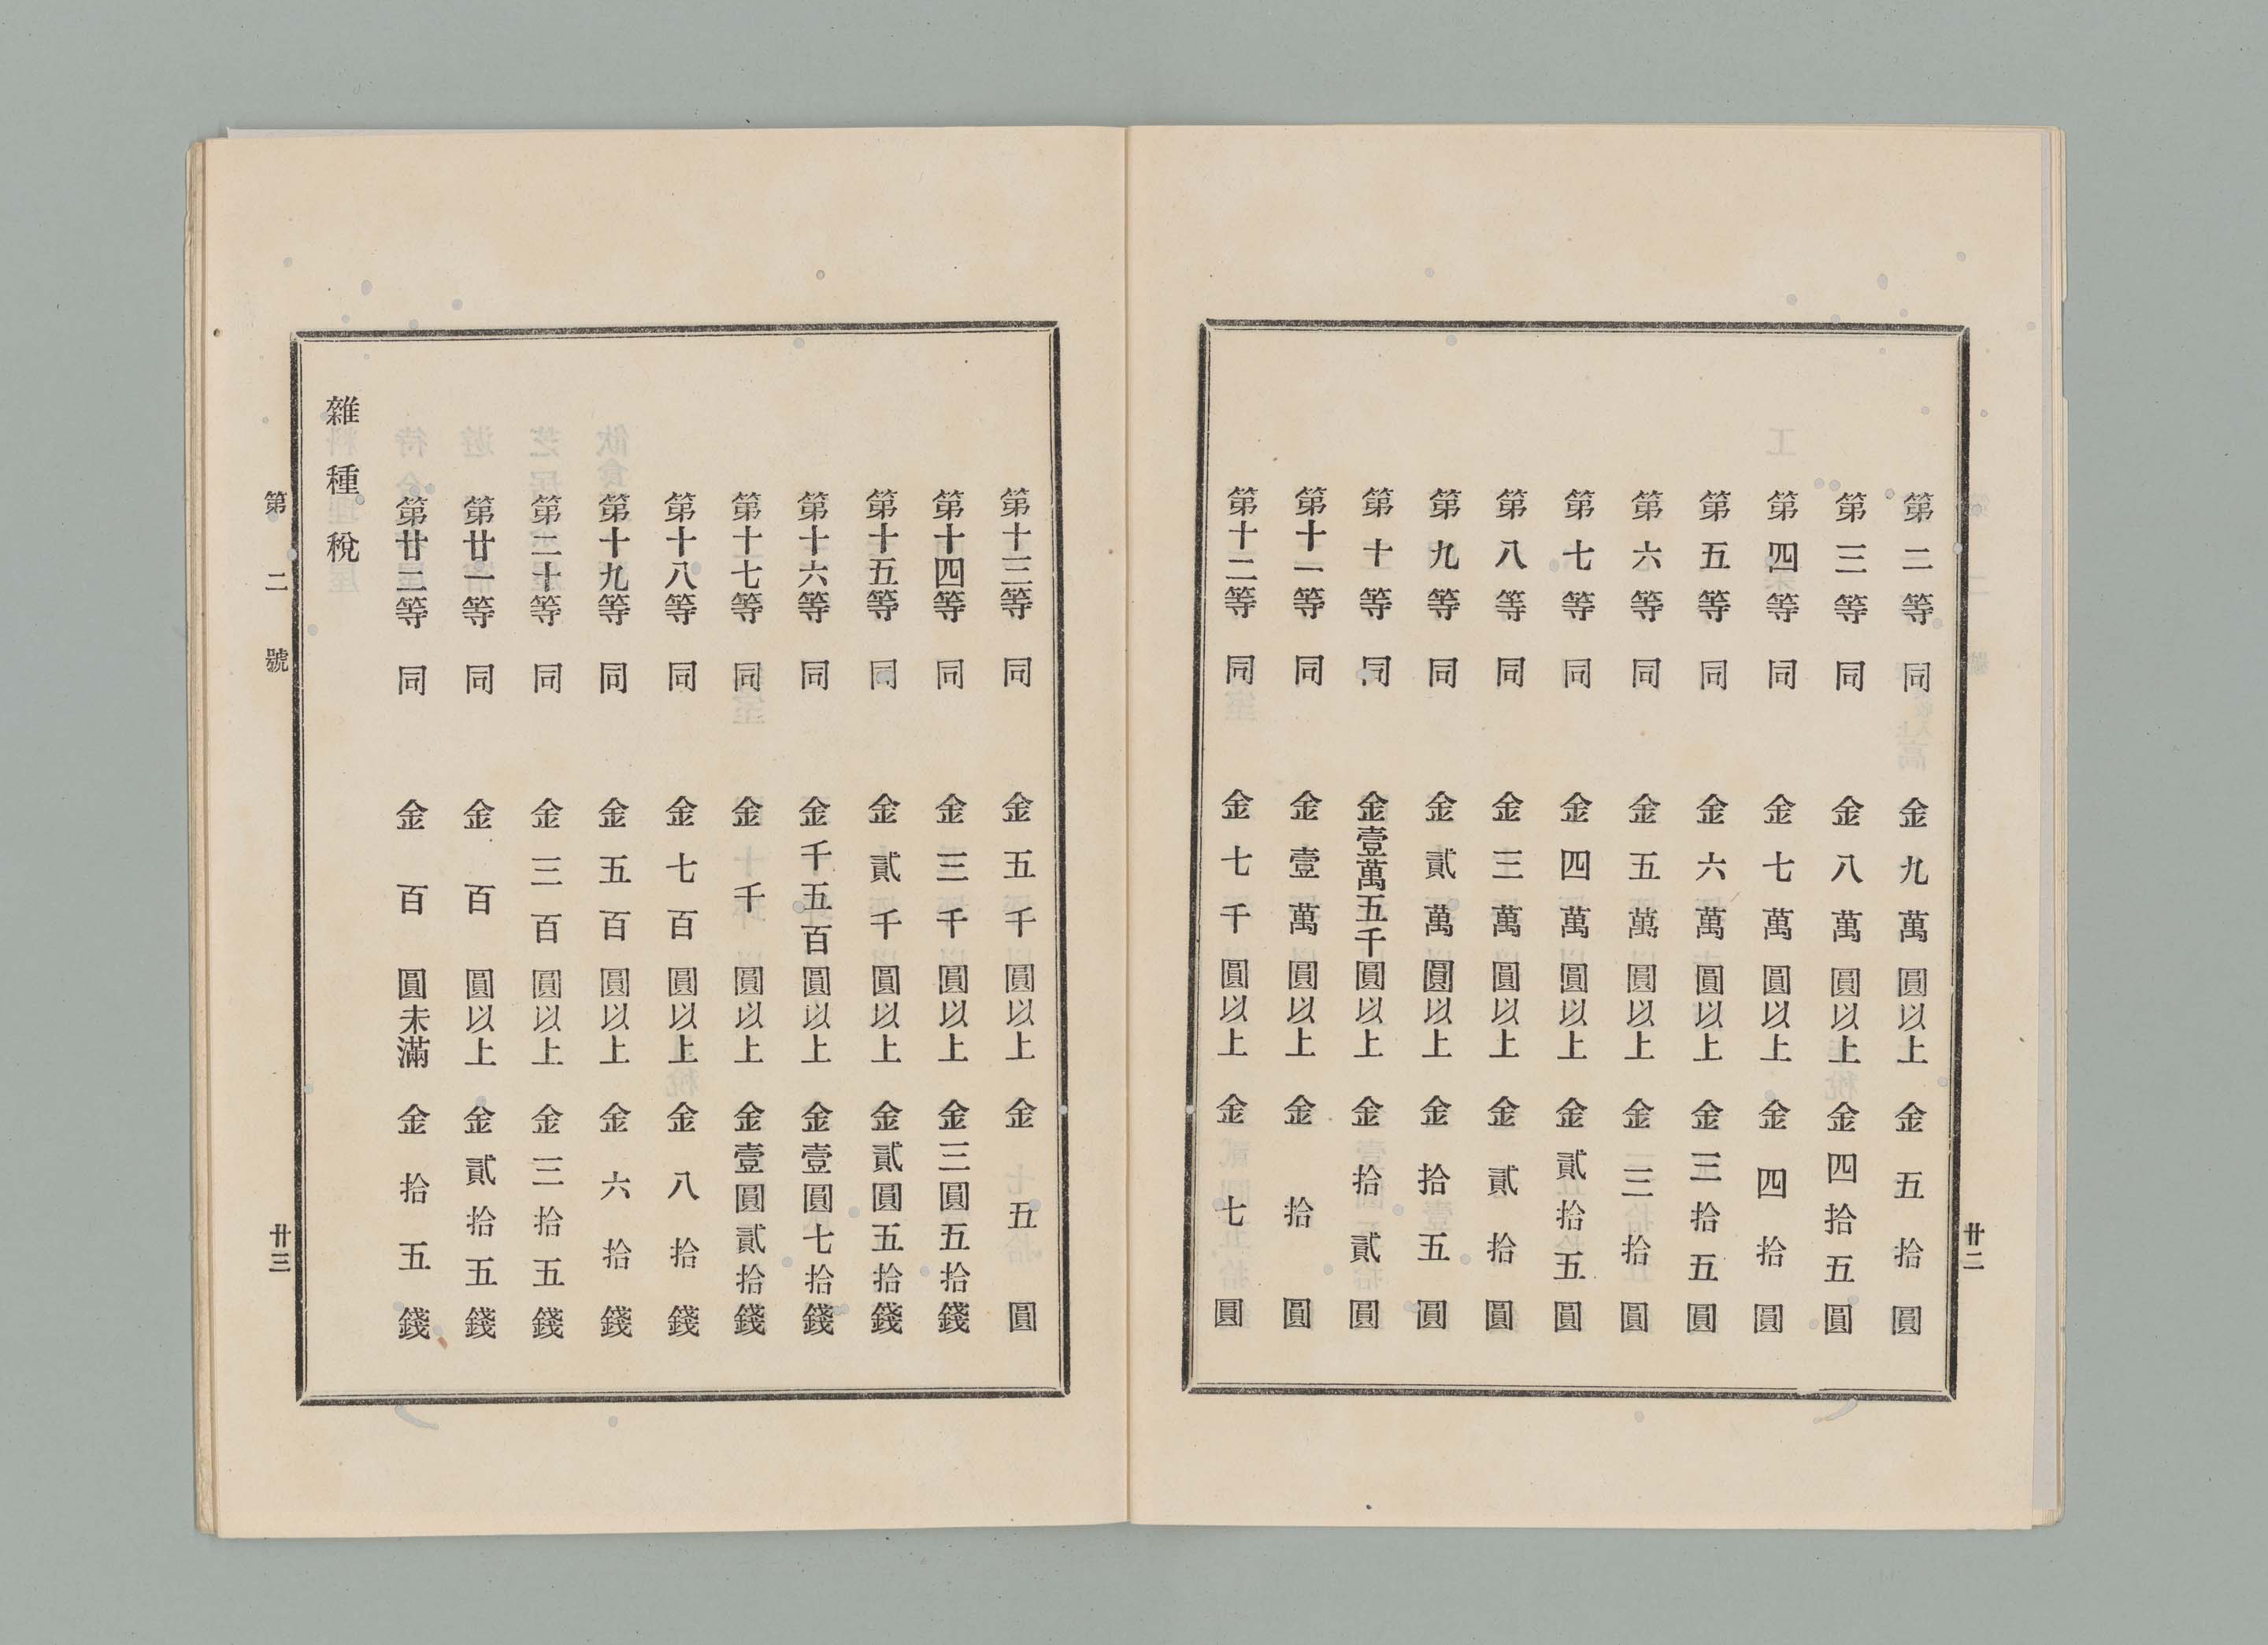 第二等同金九萬圓以上金五拾圓
第三等同金八萬圓以上金四拾五圓
第四等同金七萬圓以上金四拾圓
第五等同金六萬圓以上金三拾五圓
第六等同金五萬圓以上金三拾圓
第七等同金四萬圓以上金貳拾五圓
第八等同金三萬圓以上金貳拾圓
第九等同金貳萬圓以上金拾五圓
第十等同金壹萬五千圓以上金拾貳圓
第十一等同金壹萬圓以上金拾圓
第十二等同金七千圓以上金七圓
廿二
第十三等同金五千圓以上金五圓
第十四等同金三千圓以上金三圓五拾錢
第十五等同金貳千圓以上金貳圓五拾錢
第十六等同金千五百圓以上金壹圓七拾錢
第十七等同金千圓以上金壹圓貳拾錢
第十八等同金七百圓以上金八拾錢
第十九等同金五百圓以上金六拾錢
第二十等同金三百圓以上金三拾五錢
第廿一等同金百圓以上金貳拾五錢
第廿二等同金百圓未滿金拾五錢
雜種稅
第二號 廿三